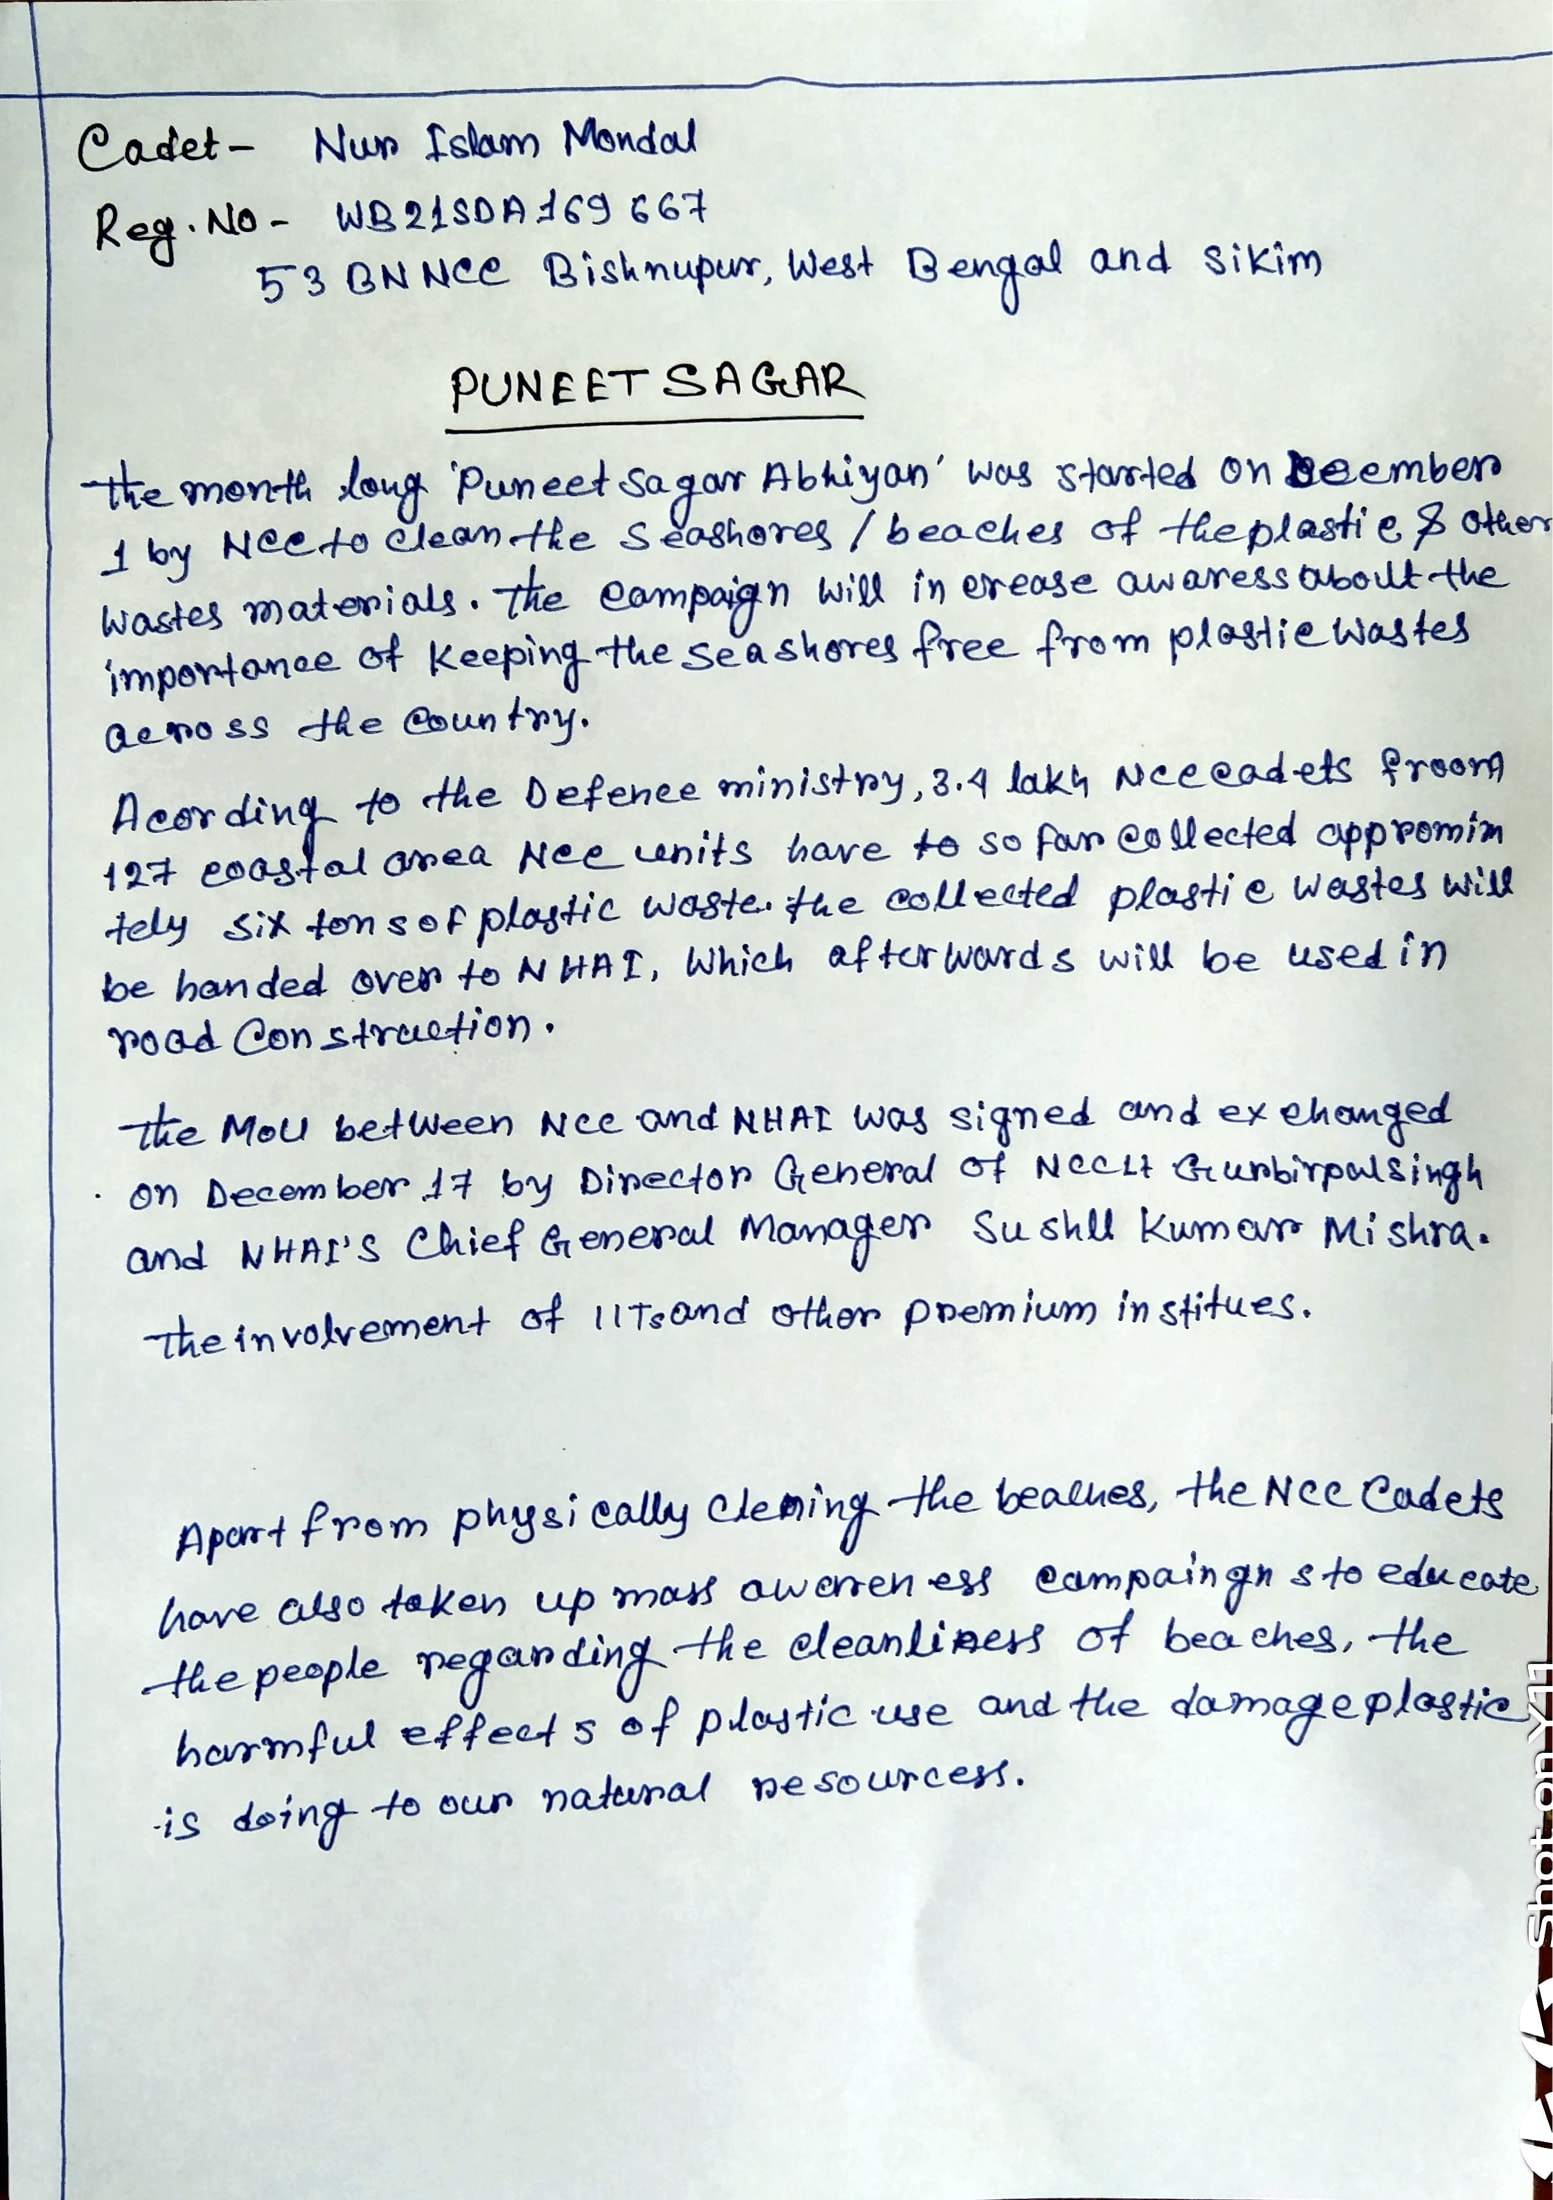 Cadet- Nur Islam Mondal
Reg. No - WB21SDA169667
53 BN NCC Bishnupur, West Bengal and Sikim
PUNEET SAGAR
The month long 'Puneet Sagar Abhiyan' was started on December
1 by NCC to clean the Seashores / beaches of the plastic & other
wastes materials. The campaign will increase awaress about the
importance of keeping the seashores free from plastic wastes
across the country.
Acording to the Defence ministry, 3.4 lakh NCC cadets froom
127 coastal area NCC units have to so far collected appromim
tely six tons of plastic waste. the collected plastic wastes will
be handed over to NHAI, which afterwards will be used in
road Construction.
The MOU between NCC and NHAI was signed and exchanged
on December 17 by Director General of NCC Lt Gurbirpal singh
and NHAI'S Chief General Manager Sushll Kumar Mishra.
The involvement of IITs and other premium institues.
Apart from physically clening the beaches, the NCC Cadets
have also taken up mass awareness campaingns to educate
the people regarding the cleanliness of beaches, the
harmful effects of plastic use and the damage plastic
is doing to our natural resourcess.
Shot on Y11